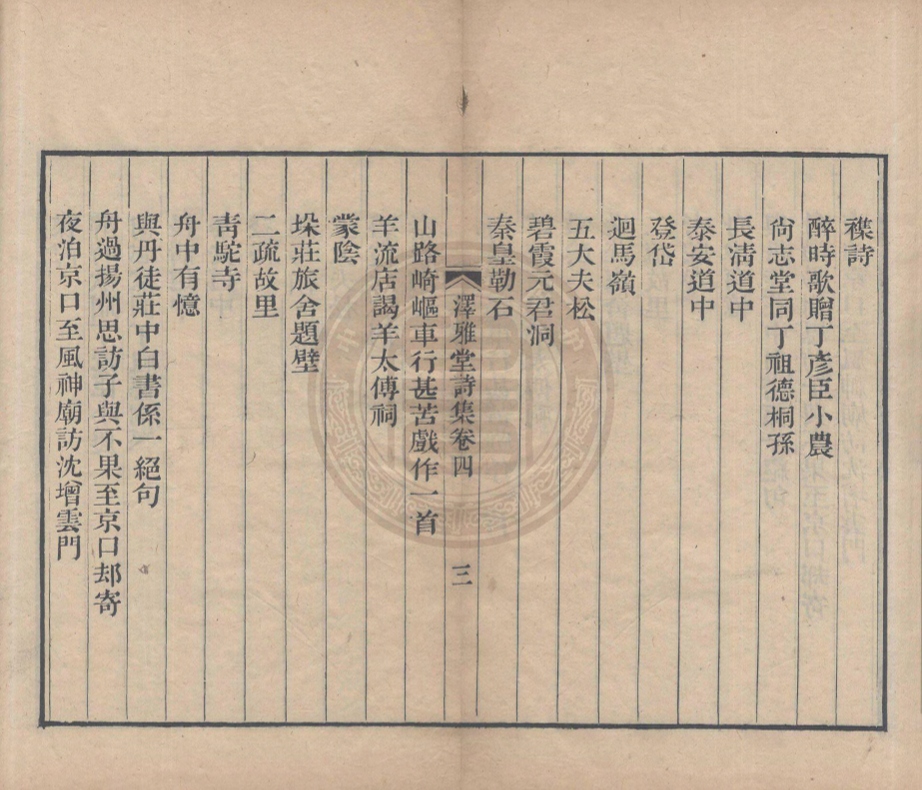 襍詩
醉時歌贈丁彥臣小農
尚志堂同丁祖德桐孫
長淸道中
泰安道中
登岱
迴馬嶺
五大夫松
碧霞元君洞
秦皇勒石
澤雅堂詩集卷四
三
山路崎嶇車行甚苦戲作一首
羊流店謁羊太傅祠
蒙陰
垛莊旅舍題壁
二疏故里
靑駝寺
舟中有憶
與丹徒莊中白書係一絕句
舟過揚州思訪子與不果至京口却寄
夜泊京口至風神廟訪沈增雲門